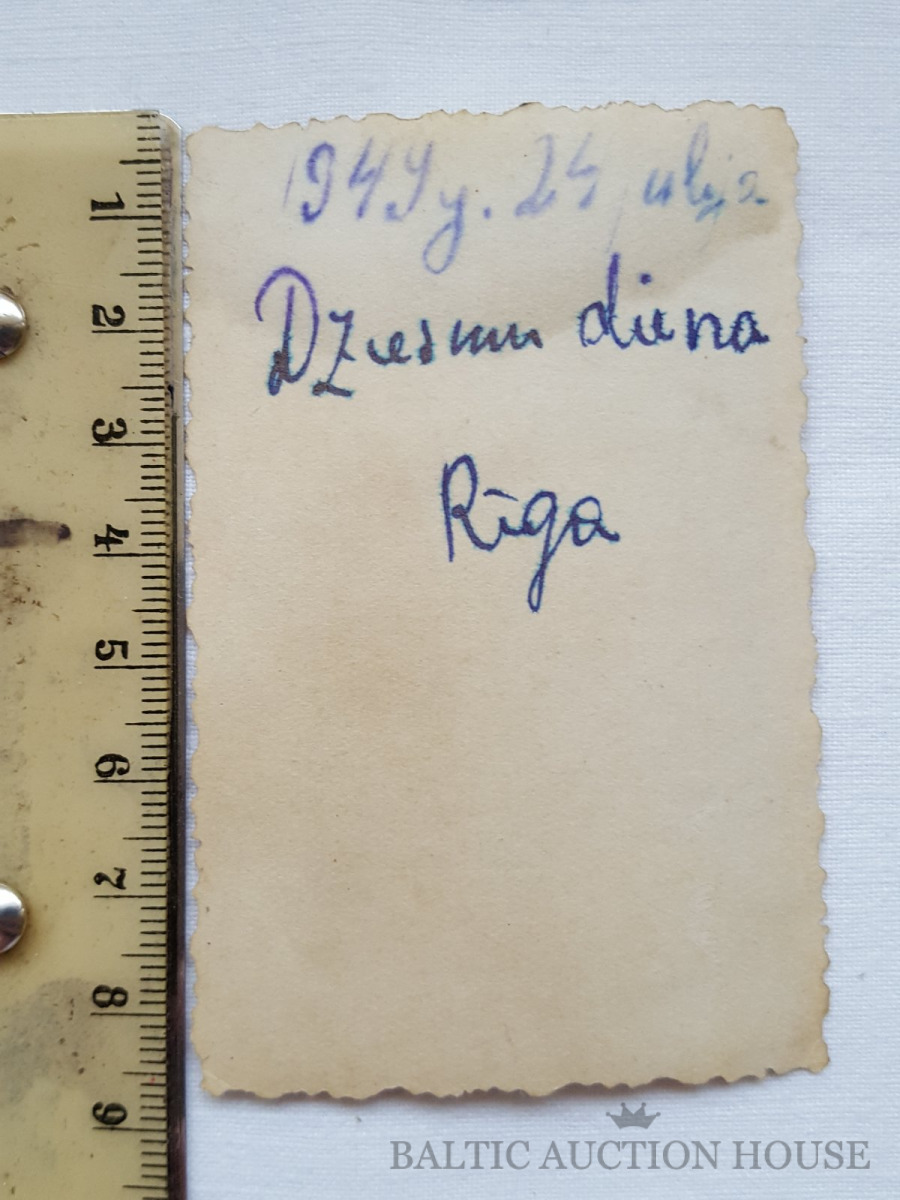 1949 g. 24 julija
Dziesmu diena
Rīga
1
2
3
4
5
6
7
8
9
BALTIC AUCTION HOUSE